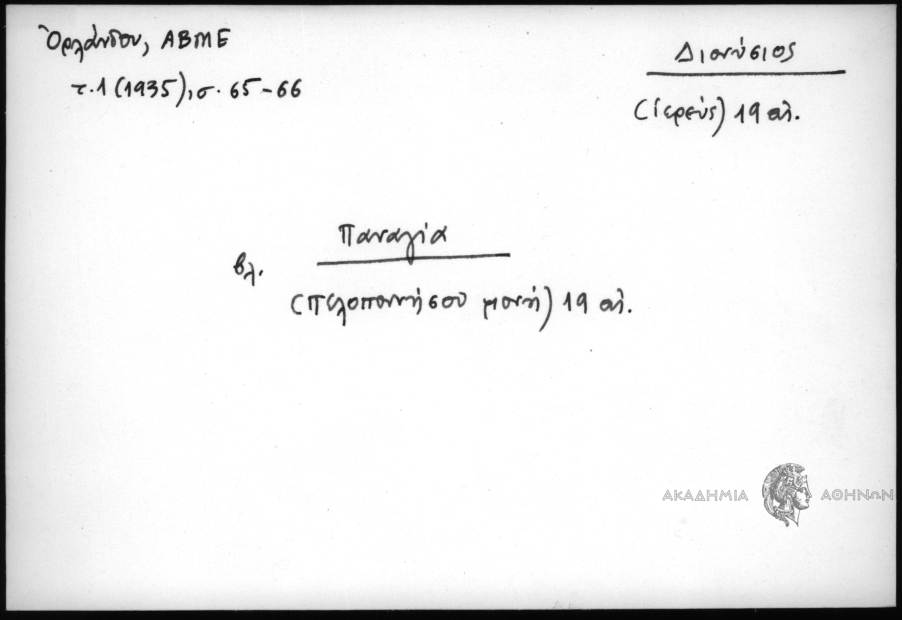 Ὀρλάνδου, ΑΒΜΕ
τ.1 (1935), σ. 65-66
Διονύσιος
(ἱερεύς) 19 αἰ.
βλ.
Παναγία
(Πελοποννήσου μονή) 19 αἰ.
ΑΚΑΔΗΜΙΑ ΑΘΗΝΩΝ